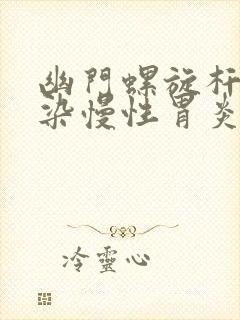 幽門螺旋杆
染慢性胃炎
冷靈心